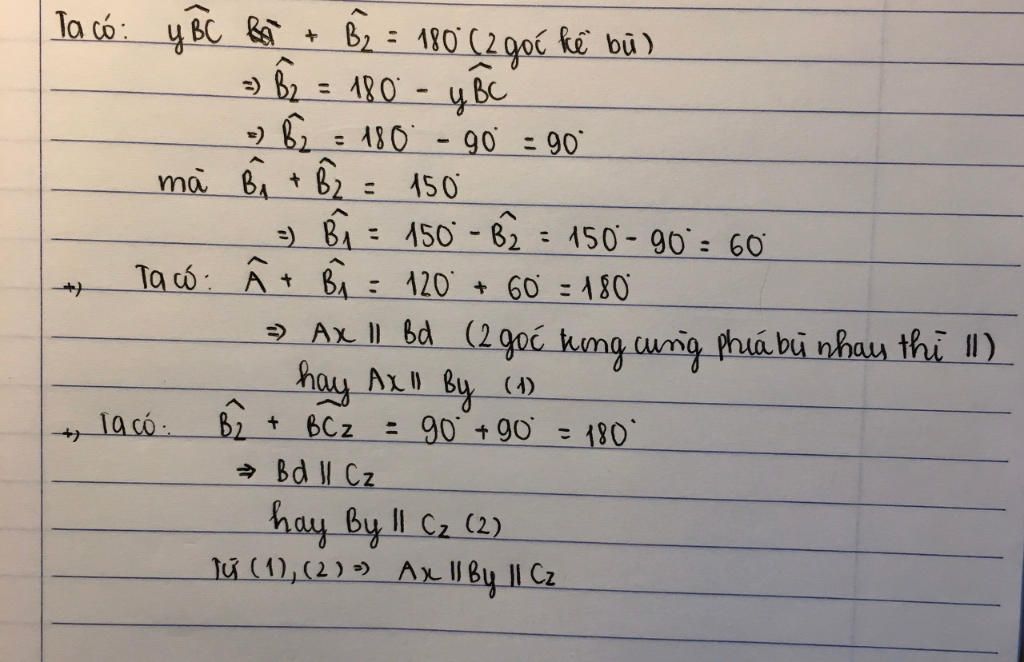 Ta có: yB̂C + B̂₂ = 180° (2 góc kề bù)
=> B̂₂ = 180° - yB̂C
=> B̂₂ = 180° - 90° = 90°
mà B̂₁ + B̂₂ = 150°
=> B̂₁ = 150° - B̂₂ = 150° - 90° = 60°
+, Ta có: Â + B̂₁ = 120° + 60° = 180°
=> Ax || Bd (2 góc trong cùng phía bù nhau thì ||)
hay Ax || By (1)
+, Ta có: B̂₂ + BĈz = 90° + 90° = 180°
=> Bd || Cz
hay By || Cz (2)
Từ (1), (2) => Ax || By || Cz